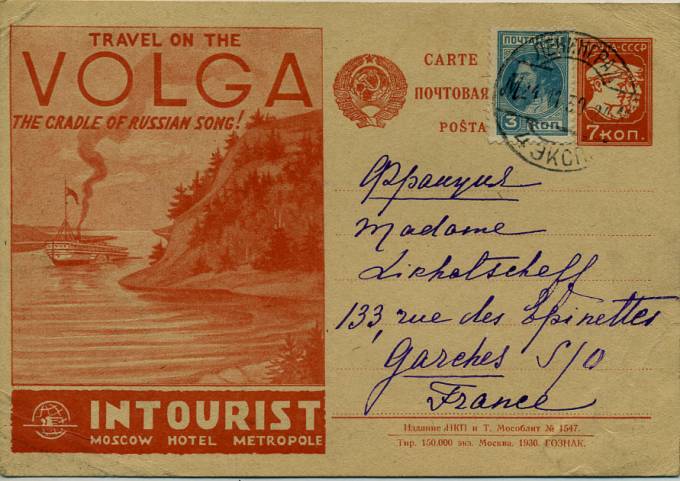 TRAVEL ON THE
VOLGA
THE CRADLE OF RUSSIAN SONG!
INTOURIST
MOSCOW HOTEL METROPOLE
CARTE
ПОЧТОВАЯ
POŠTA
ПОЧТА
3 КОП.
СССР
7 КОП.
ЭКСП
Франция
Madame
Lichatscheff
133, rue des Epinettes
Garches S/O
France
Издание НКП и Т. Мособлит № 1547.
Тир. 150.000 экз. Москва. 1930. ГОЗНАК.